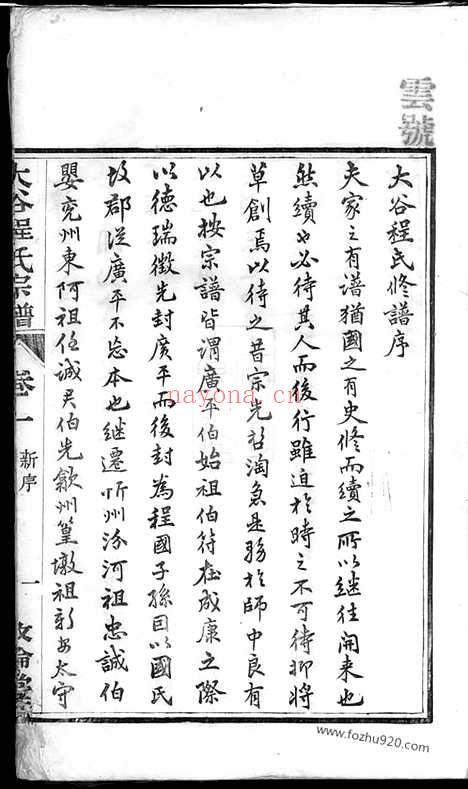 雲號
大谷程氏修譜序
夫家之有譜猶國之有史修而續之所以继往開来也
然續也必待其人而後行雖迫於時之不可待抑将
草創焉以待之昔宗先君淘急是務於師中良有
以也按宗譜皆謂廣平伯始祖伯符在成康之際
以德瑞徴先封廣平而後封為程國子孫因以國氏
故郡從廣平不忘本也继遷忻州汾河祖忠誠伯
嬰兖州東阿祖伍誠君伯先歙州篁墩祖新安太守
大谷程氏宗譜
卷一
新序
一
敘倫堂
nayona.cn
www.fozhu920.com